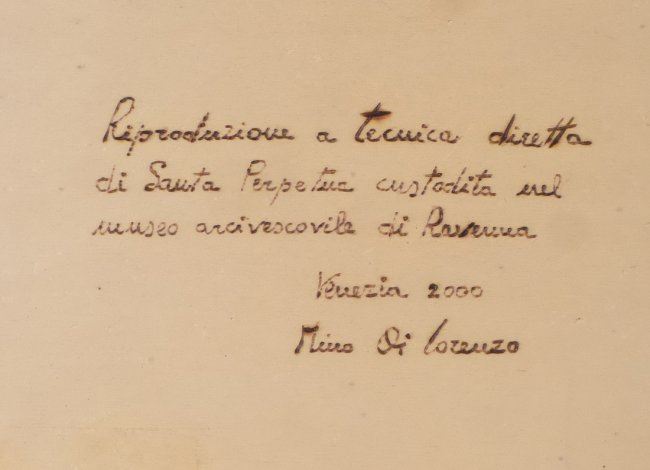 Riproduzione a tecnica diretta
di Santa Perpetua custodita nel
museo arcivescovile di Ravenna
Venezia 2000
Mino Di Lorenzo